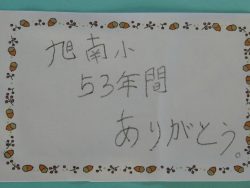 旭南小
53年間
ありがとう。